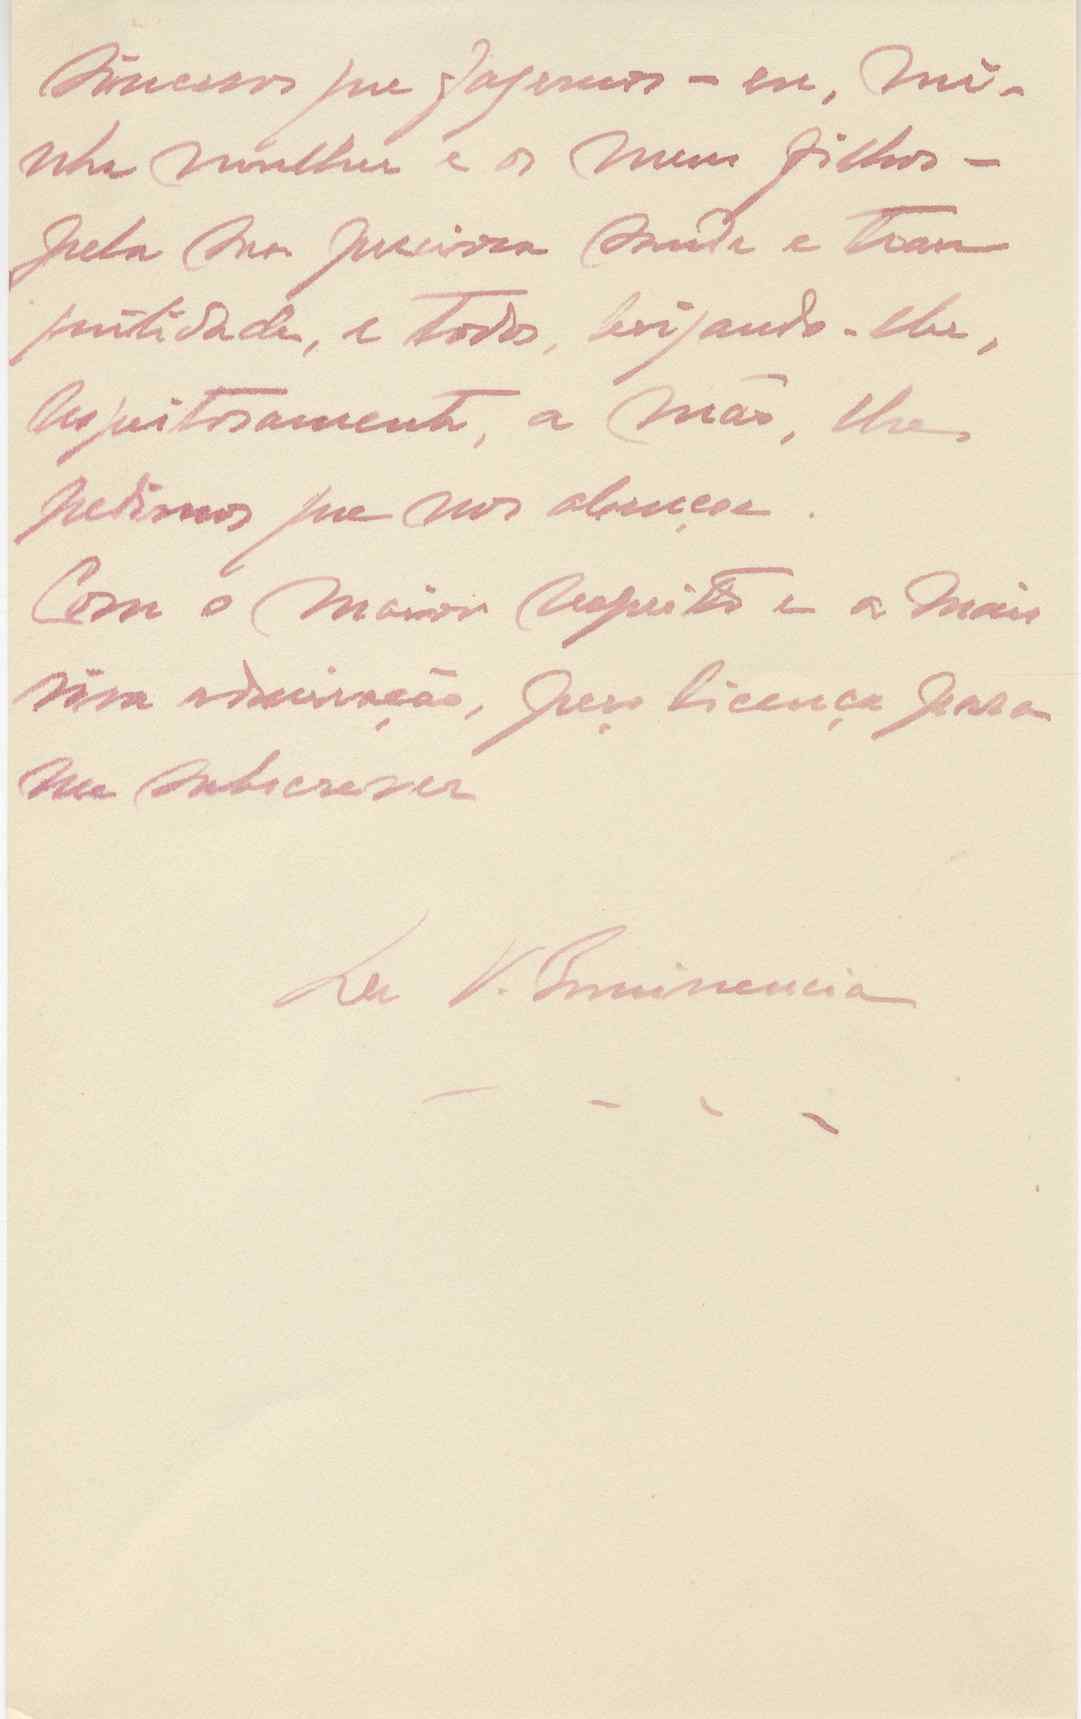 sinceros que fazemos - eu, mi-
nha mulher e os meus filhos -
pela sua preciosa saúde e tran
quilidade, e todos, beijando-lhe,
respeitosamente, a mão, lhe
pedimos que nos abençoe.
Com o maior respeito e a mais
viva admiração, peço licença para
me subscrever
De V. Eminencia
- - - -